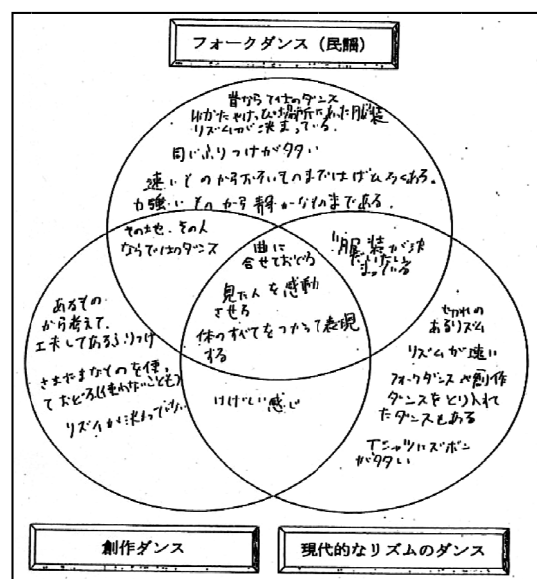 フォークダンス（民謡）
昔ならではのダンス
ゆかたやけっぴ場所にあった服装
リズムが決まっている。
同じふりつけが多い
速いものからおそいものまではばひろくある。
力強いものから静かなものまである。
その地、その人
ならではのダンス
曲に
合せておどる
服装が決
まっている
見た人を感動
させる
体のすべてをつかって表現
する
あるもの
から考えて、
工夫してあるふりつけ
さまざまなものを使っ
ておどる(使わないことも)
リズムが決まってない
はげしい感じ
切れの
あるリズム
リズムが速い
フォークダンスや創作
ダンスをとり入れ
たダンスもある
Tシャツにズボン
が多い
創作ダンス
現代的なリズムのダンス